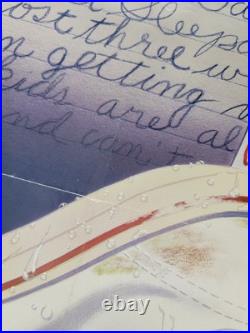 Sleepa
ost three w
n getting
kids are al
nd can't